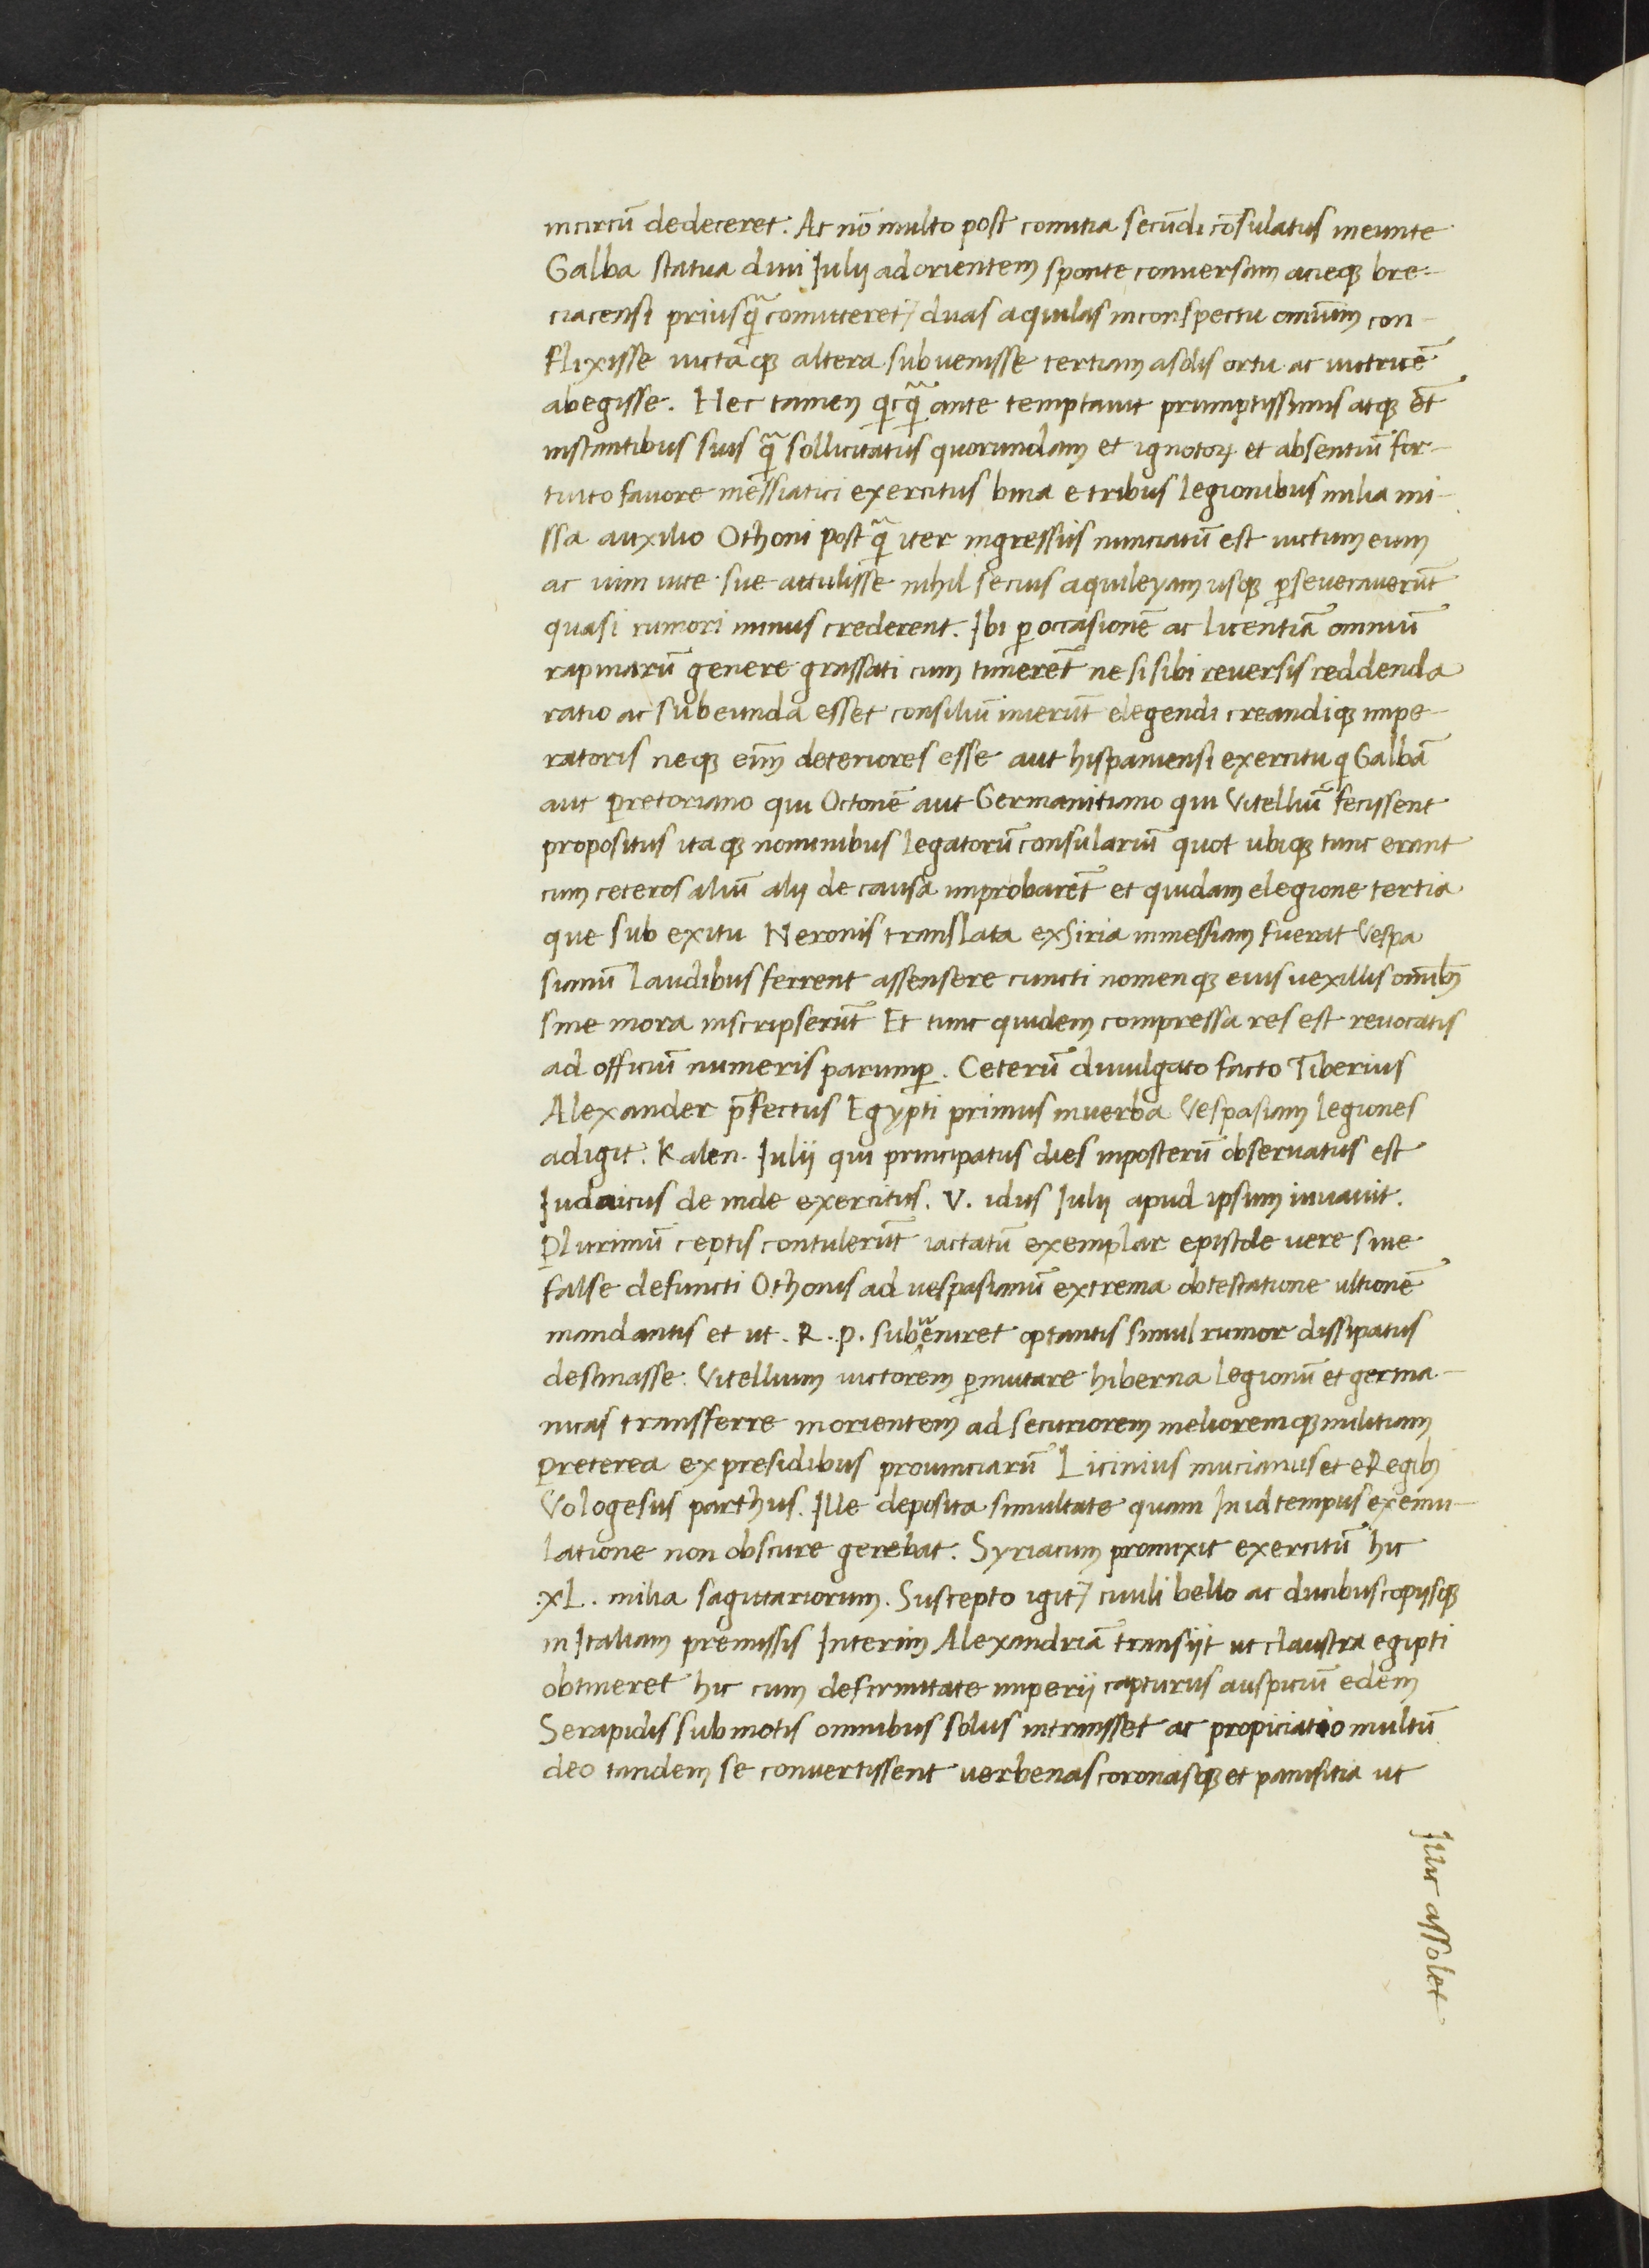 incircū dedeceret. Ac nō multo post comitia secūdi cōsulatus ineunte
Galba statua diui Julij ad orientem sponte conuersam acieqꝫ bre-
ciacensi priusꝗ̃ comitteret, duas aquilas inconspectu omniūm con-
flixisse uictaqꝫ altera subuenisse tertiam asolis ortu ac uictricē
abegisse. Hec tamen ꝗcꝗ̃ ante temptauit prumptissimis atqꝫ et̄
instantibus suis ꝗ̃ sollicitatus quorundam et ignotoꝝ et absentiū for-
tuito fauore mēssiatici exercitus bina e tribus legionibus milia mi-
ssa auxilio Othoni postꝗ̃ iter ingressis nunciatū est uictum eum
ac uim uite sue attulisse nihil secius aquileyam usqꝫ ꝑseuerauerūt
quasi rumori minus crederent. Ibi ꝑ occasionē ac licentiā omniū
rapinarū genere grassati cum timerēt ne si sibi reuersis reddenda
ratio ac subeunda esset consiliū inierūt elegendi creandiqꝫ impe-
ratoris neqꝫ eīm deteriores esse aut hispaniensi exercitu ꝗ Galbā
aut pretoriano qui Octonē aut Germanitiano qui Vitelliū fecissent
propositus itaqꝫ nominibus legatorū consulariū quot ubiqꝫ tunc erant
cum ceteros aliū alij de causa improbarēt et quidam elegione tertia
que sub exitu Neronis translata ex Siria inmessiam fuerat Vespa
sianū laudibus ferrent assensere cuncti nomenqꝫ eius uexillis omībꝫ
sine mora inscripserūt Et tunc quidem compressa res est reuocatis
ad officiū numeris parumꝑ. Ceterū diuulgato facto Tiberius
Alexander p̄fectus Egypti primus inuerba Vespasiani legiones
adigit. Kalen. Julij qui principatus dies inposterū obseruatus est
Judaicus de inde exercitus. V. idus Julij apud ipsum iuuauit.
Plurimū ceptis contulerūt iactatū exemplar epistole uere siue
false defuncti Othonis ad uespasianū extrema obtestatione ultionē
mandantis et ut. R. P. subueniret optantis simul rumor dissipatus
destinasse. Vitellium uictorem ꝑmutare hiberna legionū et germa-
nicas transferre in orientem ad securiorem melioremqꝫ militiam
preterea ex presidibus prouinciarū Licinius mucianus et e Regibꝫ
Vologesus parthus. Ille deposita simultate quam In id tempus ex emu-
latione non obscure gerebat. Syriacum promixit exercitū hic
.XL. milia sagittariorum. Suscepto igit̃ ciuili bello ac ducibus copijsqꝫ
in Italiam premissis Interim Alexandriā transijt ut claustra egipti
obtineret hic cum defirmitate imperij capturus auspiciū edem
Serapidis submotis omnibus solus intrasset ac propiciatio multū
deo tandem se conuertissent uerbenas coronasqꝫ et panifitia ut
Illic assolet